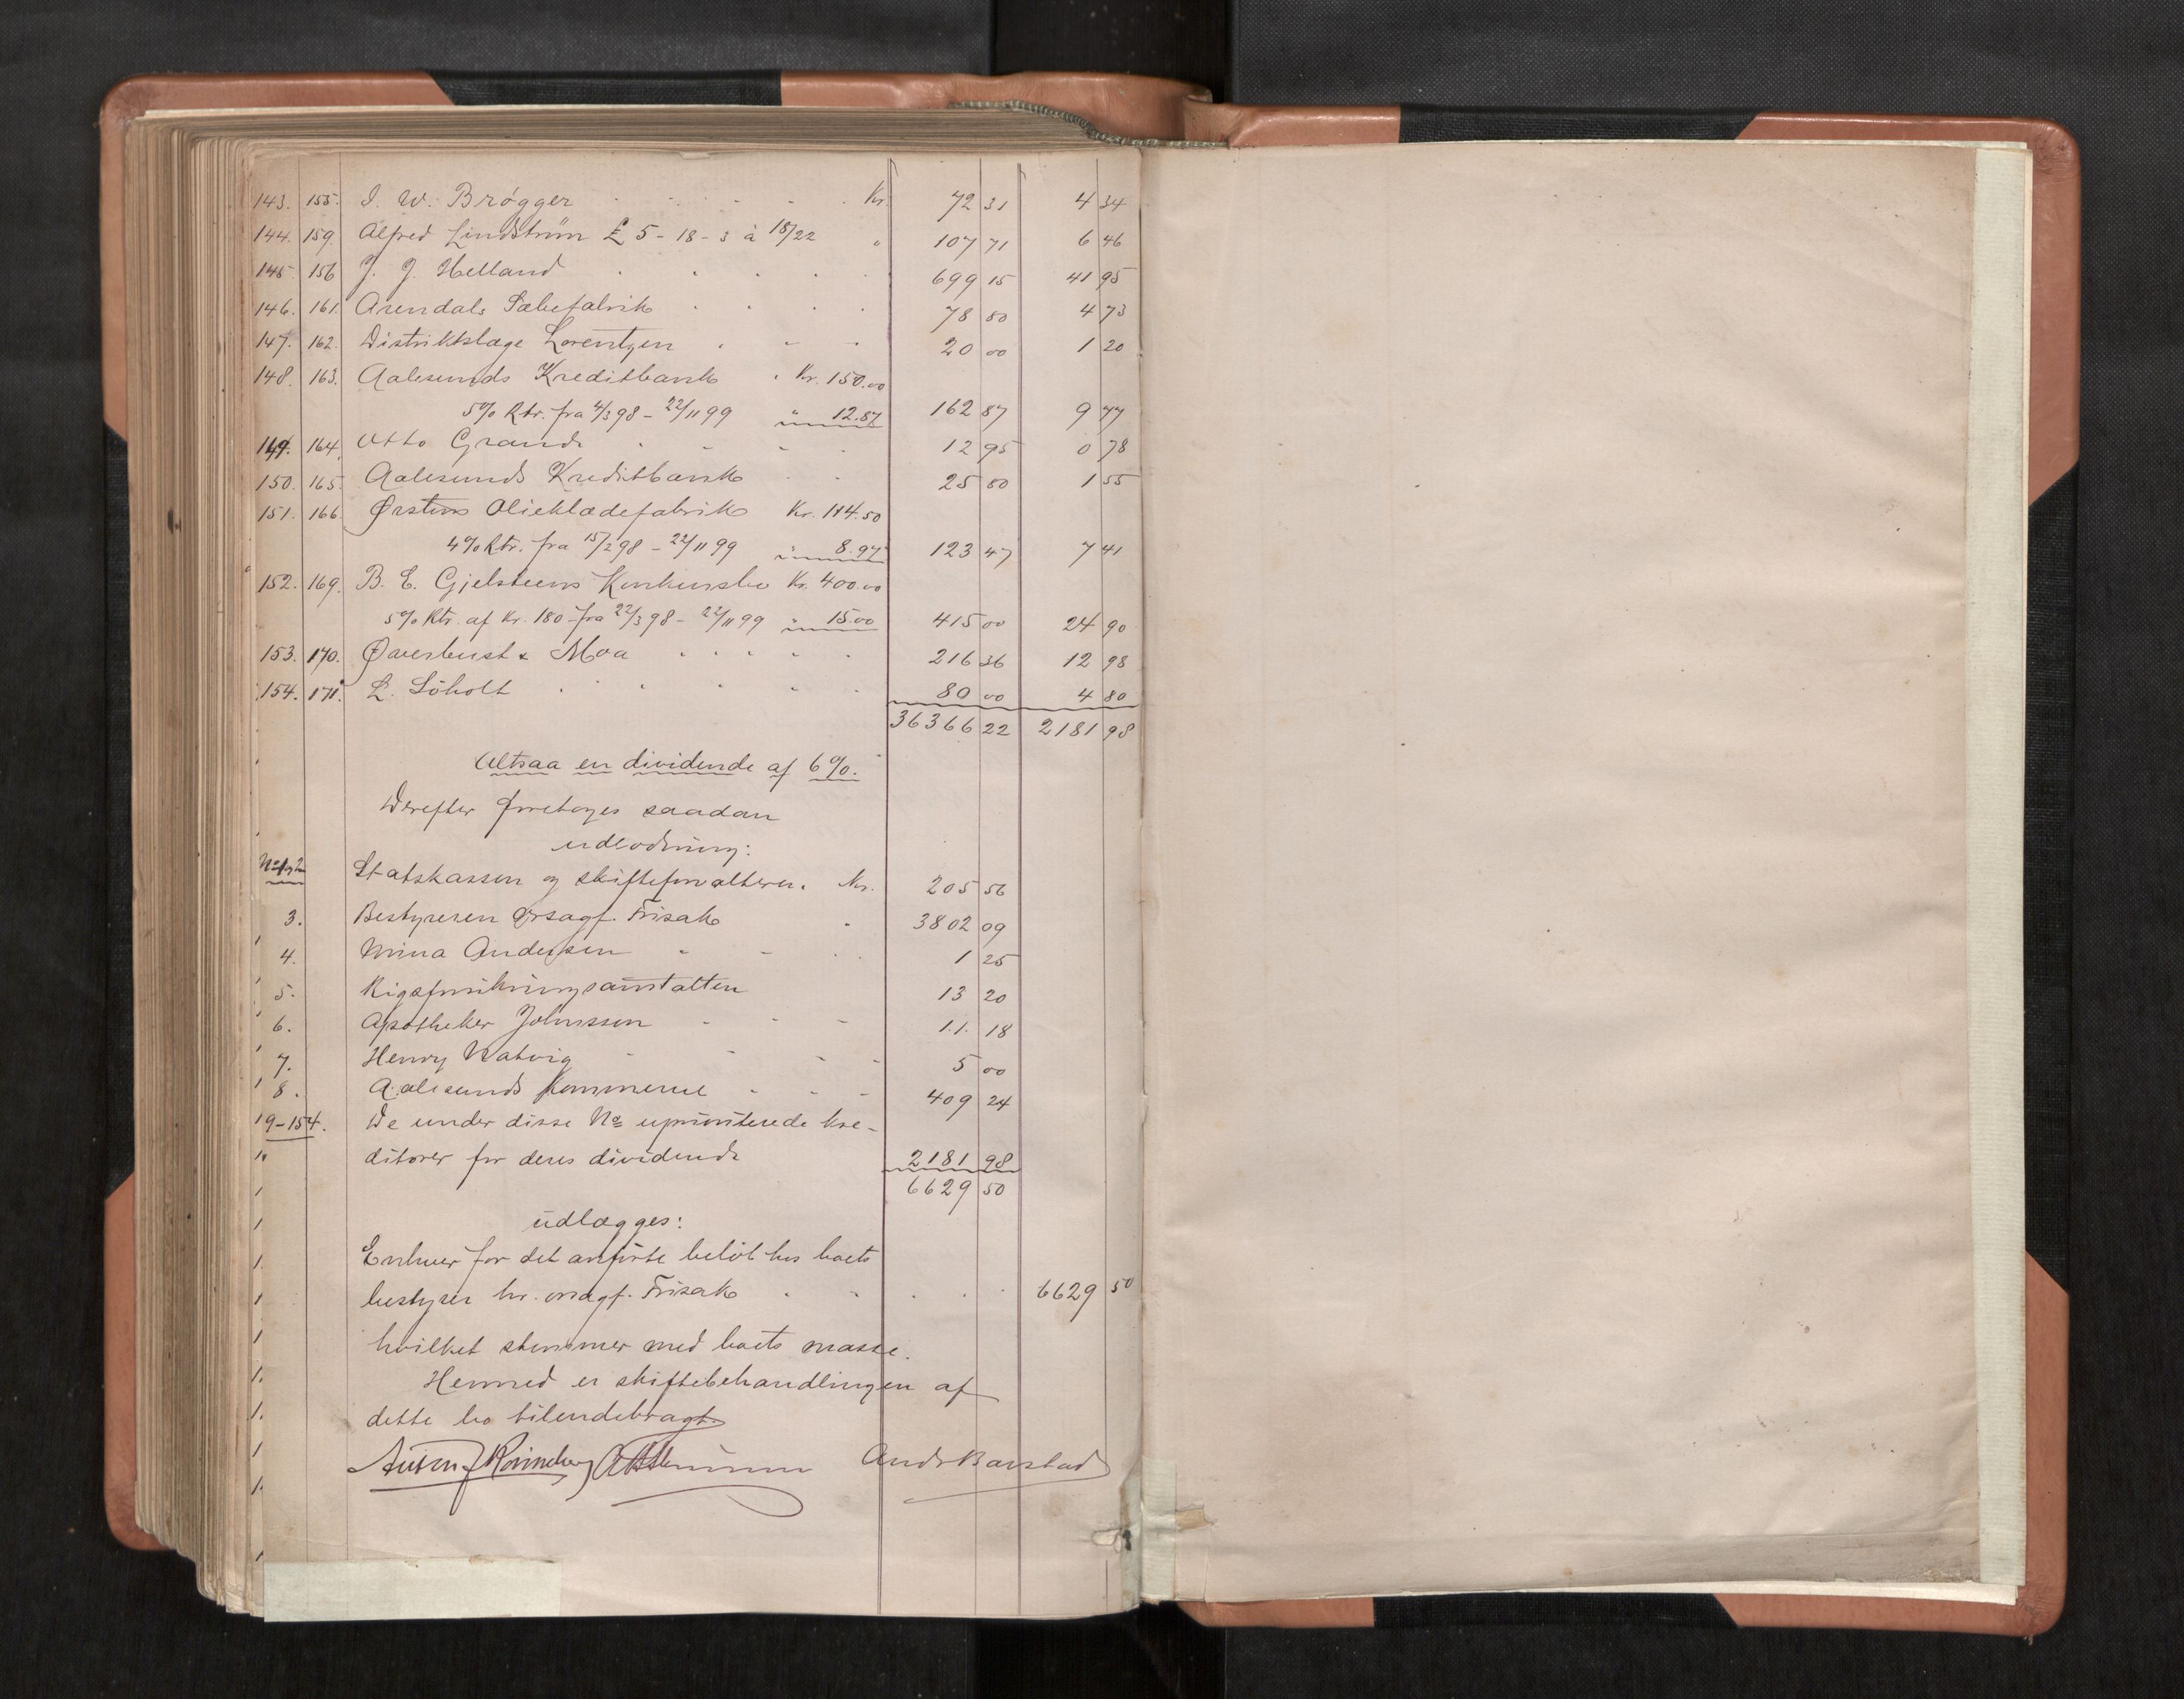 143. 155. I. W. Brøgger Kr. 72 31 4 34
144. 159. Alfred Lindstrøm £ 5-18-3 à 18/22 " 107 71 6 46
145. 156 J. J. Helland 699 15 41 95
146. 161. Arendals Sæbefabrik 78 80 4 73
147. 162. Distriktslæge Lorentzen 20 00 1 20
148. 163. Aalesunds Kreditbank Kr. 150.00
5% Rtr. fra 4/3 98 - 22/11 99 " 12.87 162 87 9 77
149. 164. Otto Grande 12 95 0 78
150. 165. Aalesunds Kreditbank 25 80 1 55
151. 166. Ørstens Olieklædefabrik Kr. 114.50
4% Rtr. fra 15/2 98 - 22/11 99 " 8.97 123 47 7 41
152. 169. B. E. Gjelsteens Konkursbo Kr. 400.00
5% Rtr. af Kr. 180 fra 22/3 98 - 22/11 99 " 15.00 415 00 24 90
153. 170. Øverbust & Moa 216 36 12 98
154. 171. L. Söholt 80 00 4 80
36366 22 2181 98
Altsaa en dividende af 6%.
Derefter foretages saadan
udlodning:
No 1 og 2 Statskassen og skifteforvalteren. Kr. 205 56
3. Bestyreren Orsagf. Frisak 3802 09
4. Mina Andersen 1 25
5. Rigsforsikringsanstalten 13 20
6. Apotheker Johnsson 11. 18
7. Henry Natvig 5 00
8. Aalesunds Kommune 409 24
9-154. De under disse No uprioriterede kre-
ditorer for deres dividende 2181 98
6629 50
udlægges:
Enhver for det anførte beløb hos boets
bestyrer hr. orsagf. Frisak 6629 50
hvilket stemmer med boets masse.
Hermed er skiftebehandlingen af
dette bo tilendebragt.
Rønneberg Ands Barstad